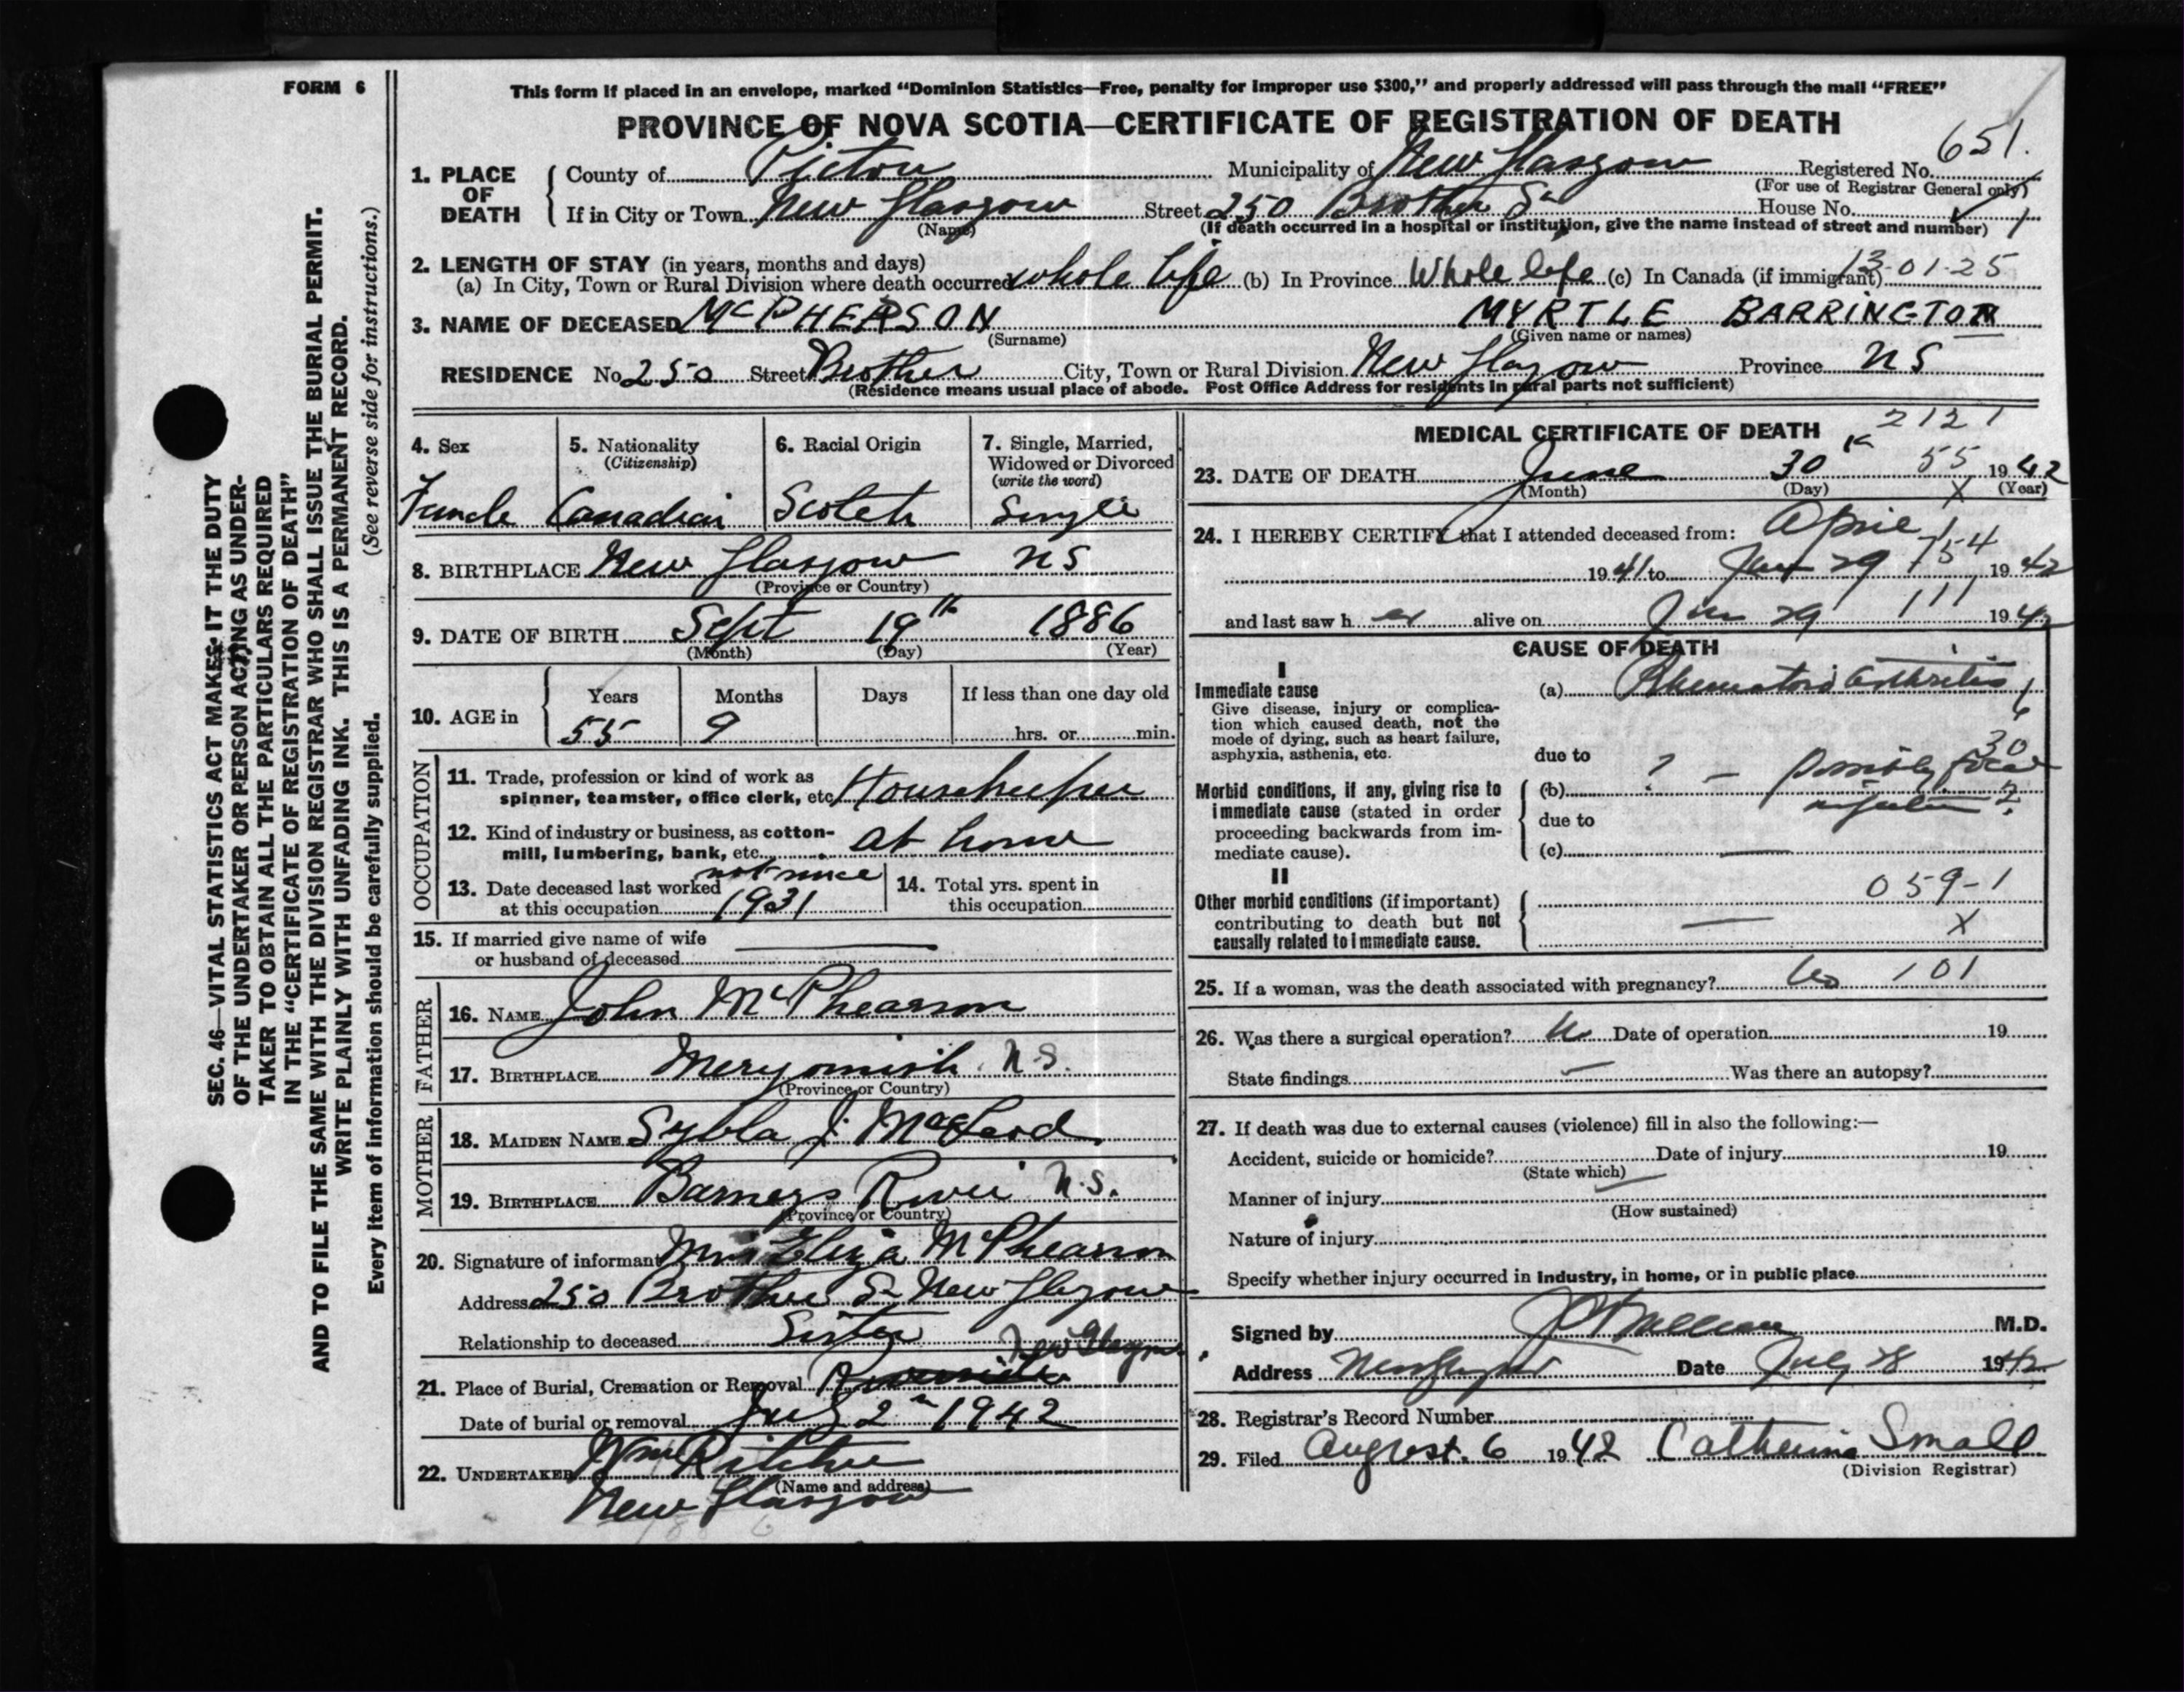 FORM 6
This form if placed in an envelope, marked “Dominion Statistics—Free, penalty for improper use $300,” and properly addressed will pass through the mail “FREE”
PROVINCE OF NOVA SCOTIA—CERTIFICATE OF REGISTRATION OF DEATH
SEC. 46—VITAL STATISTICS ACT MAKES IT THE DUTY
OF THE UNDERTAKER OR PERSON ACTING AS UNDER-
TAKER TO OBTAIN ALL THE PARTICULARS REQUIRED
IN THE “CERTIFICATE OF REGISTRATION OF DEATH”
AND TO FILE THE SAME WITH THE DIVISION REGISTRAR WHO SHALL ISSUE THE BURIAL PERMIT.
WRITE PLAINLY WITH UNFADING INK. THIS IS A PERMANENT RECORD.
Every item of information should be carefully supplied. (See reverse side for instructions.)
1. PLACE OF DEATH County of Pictou Municipality of New Glasgow Registered No. 651.
(For use of Registrar General only)
If in City or Town New Glasgow Street 250 Brother St House No.
(Name) (If death occurred in a hospital or institution, give the name instead of street and number)
2. LENGTH OF STAY (in years, months and days)
(a) In City, Town or Rural Division where death occurred whole life (b) In Province Whole life (c) In Canada (if immigrant) 13-01-25
3. NAME OF DECEASED McPHERSON MYRTLE BARRINGTON
(Surname) (Given name or names)
RESIDENCE No. 250 Street Brother City, Town or Rural Division New Glasgow Province NS
(Residence means usual place of abode. Post Office Address for residents in rural parts not sufficient)
4. Sex 5. Nationality (Citizenship) 6. Racial Origin 7. Single, Married, Widowed or Divorced (write the word)
Female Canadian Scotch Single
8. BIRTHPLACE New Glasgow NS
(Province or Country)
9. DATE OF BIRTH Sept 19th 1886
(Month) (Day) (Year)
10. AGE in Years Months Days If less than one day old
55 9 hrs. or min.
OCCUPATION
11. Trade, profession or kind of work as
spinner, teamster, office clerk, etc. Housekeeper
12. Kind of industry or business, as cotton-
mill, lumbering, bank, etc. at home
13. Date deceased last worked not since
at this occupation 1931
14. Total yrs. spent in
this occupation
15. If married give name of wife
or husband of deceased
FATHER
16. NAME John McPhearson
17. BIRTHPLACE Merigomish N.S.
(Province or Country)
MOTHER
18. MAIDEN NAME Sybla J. MacLeod
19. BIRTHPLACE Barneys River N.S.
(Province or Country)
20. Signature of informant Eliza McPhearson
Address 250 Brother St New Glasgow
Relationship to deceased Sister
New Glasgow
21. Place of Burial, Cremation or Removal Riverside
Date of burial or removal July 2nd 1942
22. UNDERTAKER Wm Ritchie
(Name and address)
New Glasgow
MEDICAL CERTIFICATE OF DEATH
2121
23. DATE OF DEATH June 30th 55 1942
(Month) (Day) X (Year)
24. I HEREBY CERTIFY that I attended deceased from: April 1
1941 to June 29 754 1942
and last saw her alive on June 29 111 1942
CAUSE OF DEATH
I
Immediate cause
Give disease, injury or complica-
tion which caused death, not the
mode of dying, such as heart failure,
asphyxia, asthenia, etc.
(a) Rheumatoid arthritis
30
due to
Morbid conditions, if any, giving rise to
immediate cause (stated in order
proceeding backwards from im-
mediate cause).
(b) ? — possibly focal
infection ?
due to
(c) —
II
Other morbid conditions (if important)
contributing to death but not
causally related to immediate cause.
059-1
X
25. If a woman, was the death associated with pregnancy? No 101
26. Was there a surgical operation? No Date of operation 19
State findings Was there an autopsy?
27. If death was due to external causes (violence) fill in also the following:—
Accident, suicide or homicide? Date of injury 19
(State which)
Manner of injury
(How sustained)
Nature of injury
Specify whether injury occurred in industry, in home, or in public place
Signed by M.D.
Address New Glasgow Date July 8 1942
28. Registrar's Record Number
29. Filed August. 6 1942 Catherine Small
(Division Registrar)